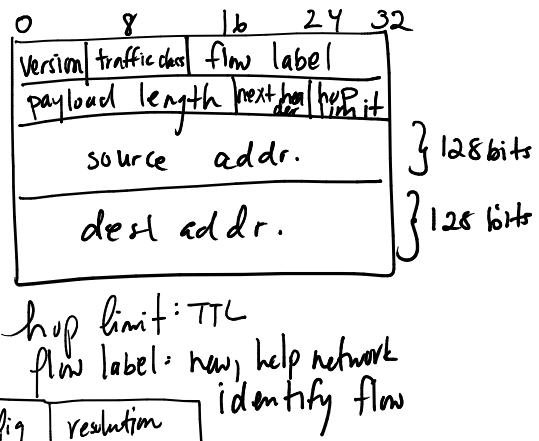 0 8 16 24 32
version traffic class flow label
payload length next header hop limit
source addr. 128 bits
dest addr. 128 bits
hop limit: TTL
flow label: new, help network
identify flow
fig resolution